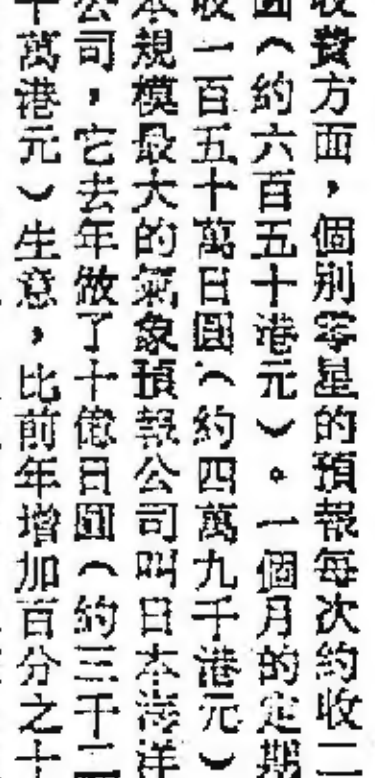 收費方面，個別零星的預報每次約收二
圓（約六百五十港元）。一個月的定期
收一百五十萬日圓（約四萬九千港元）
本規模最大的氣象預報公司叫日本海洋
公司，它去年做了十億日圓（約三千二
千萬港元）生意，比前年增加百分之十